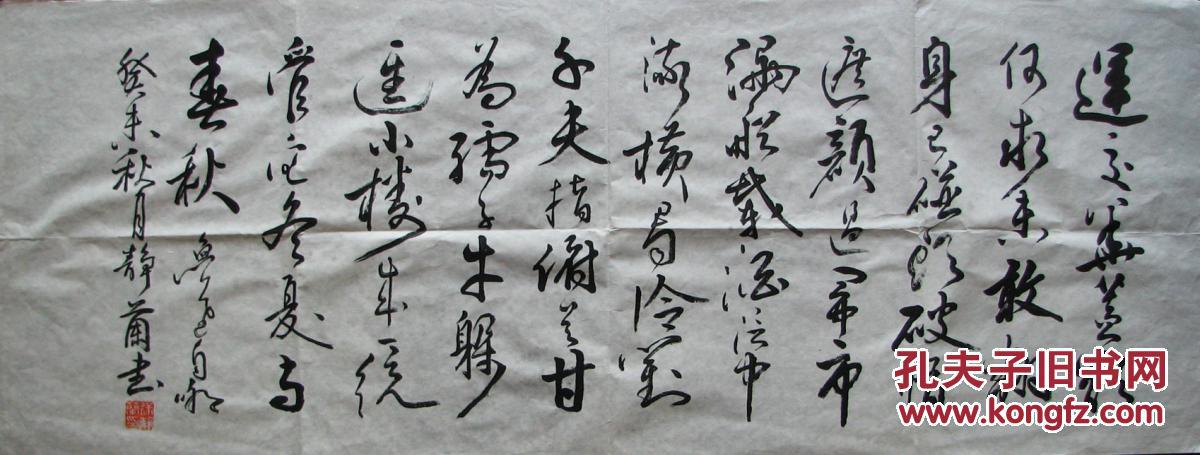 運交華蓋欲
何求未敢翻
身已碰頭破帽
遮顏過鬧市
漏船載酒泛中
流橫眉冷對
千夫指俯首甘
為孺子牛躲
進小樓成一統
管它冬夏与
春秋 魯迅自嘲
癸未秋月靜莆书
孔夫子旧书网
www.kongfz.com